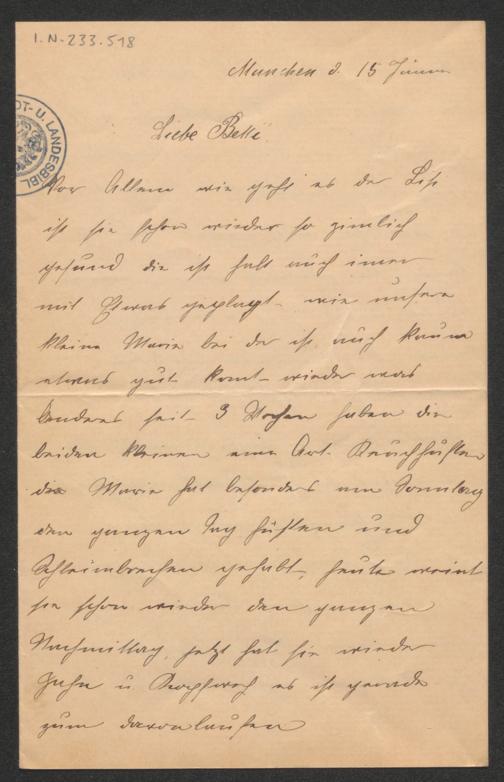 I.N.-233.518
DT- U. LANDESBIBL
München d. 15 Jänner
Liebe Betti
Vor Allem wie geht es der Lisi
ist sie schon wieder so zimlich
gesund die ist halt auch imer
mit Etwas geplagt wie unsere
kleine Marie bei der ist auch kaum
etwas gut komt wieder was
anderes seit 3 Wochen haben die
beiden kleinen eine Art Keuchhusten
die Marie hat besonders am Sonntag
den ganzen Tag husten und
Schleimbrechen gehabt, heute weint
sie schon wieder den ganzen
Nachmittag, jetzt hat sie wieder
Zahn u Kopfweh es ist gerade
zum davonlaufen